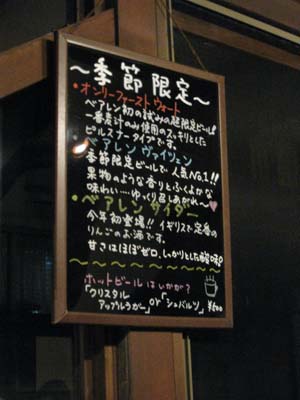 〜季節限定〜
・オンリーファーストウォート
ベアレン初の試みの超限定ビール
一番麦汁のみ使用のスッキリとした
ピルスナータイプです。
ベアレン ヴァイツェン
季節限定ビールで人気No.1!!
果物のような香りとふくよかな
味わい…ゆっくり召しあがれ〜♥
・ベアレン サイダー
今年初登場!! イギリスで定番の
りんごのお酒です。
甘さはほぼゼロ、しっかりとした酸味♪
ホットビールはいかが?
「クリスタル
アップルラガー」or「シュバルツ」 ¥600